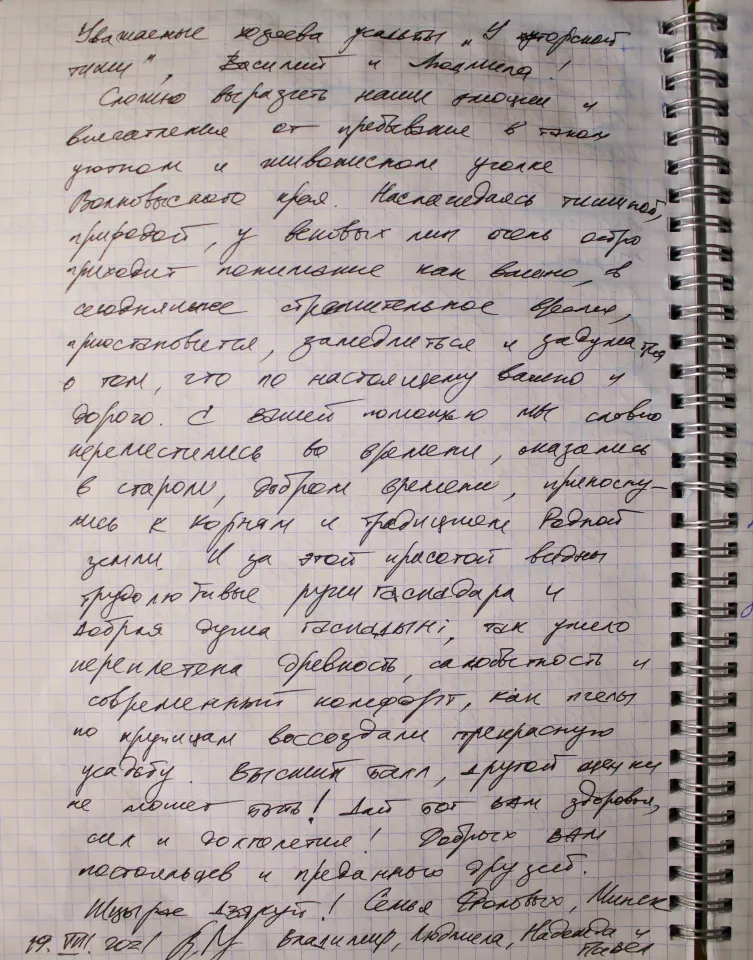 Уважаемые хозяева усадьбы „У хуторской
тиши", Василий и Людмила!
Сложно выразить наши эмоции и
впечатления от пребывание в таком
уютном и живописном уголке
Волковысского края. Наслаждаясь тишиной,
природой, у вековых лип очень остро
приходит понимание как важно, в
сегодняшнее стремительное время,
приостановится, замедлиться и задуматься
о том, что по настоящему важно и
дорого. С вашей помощью мы словно
переместились во времени, оказались
в старом, добром времени, прикосну-
лись к корням и традициям Родной
земли. И за этой красотой видны
трудолюбивые руки гаспадара и
добрая душа гаспадыні, так умело
переплетена древность, самобытность и
современный комфорт, как пчелы
по крупицам воссоздали прекрасную
усадьбу. Высший балл, другой оценки
не может быть! Дай бог вам здоровья,
сил и долголетия! Добрых вам
постояльцев и преданных друзей.
Шчырае дзякуй! Семья Фроловых, Минск
19. VIII. 2021 Владимир, Людмила, Надежда и
Павел